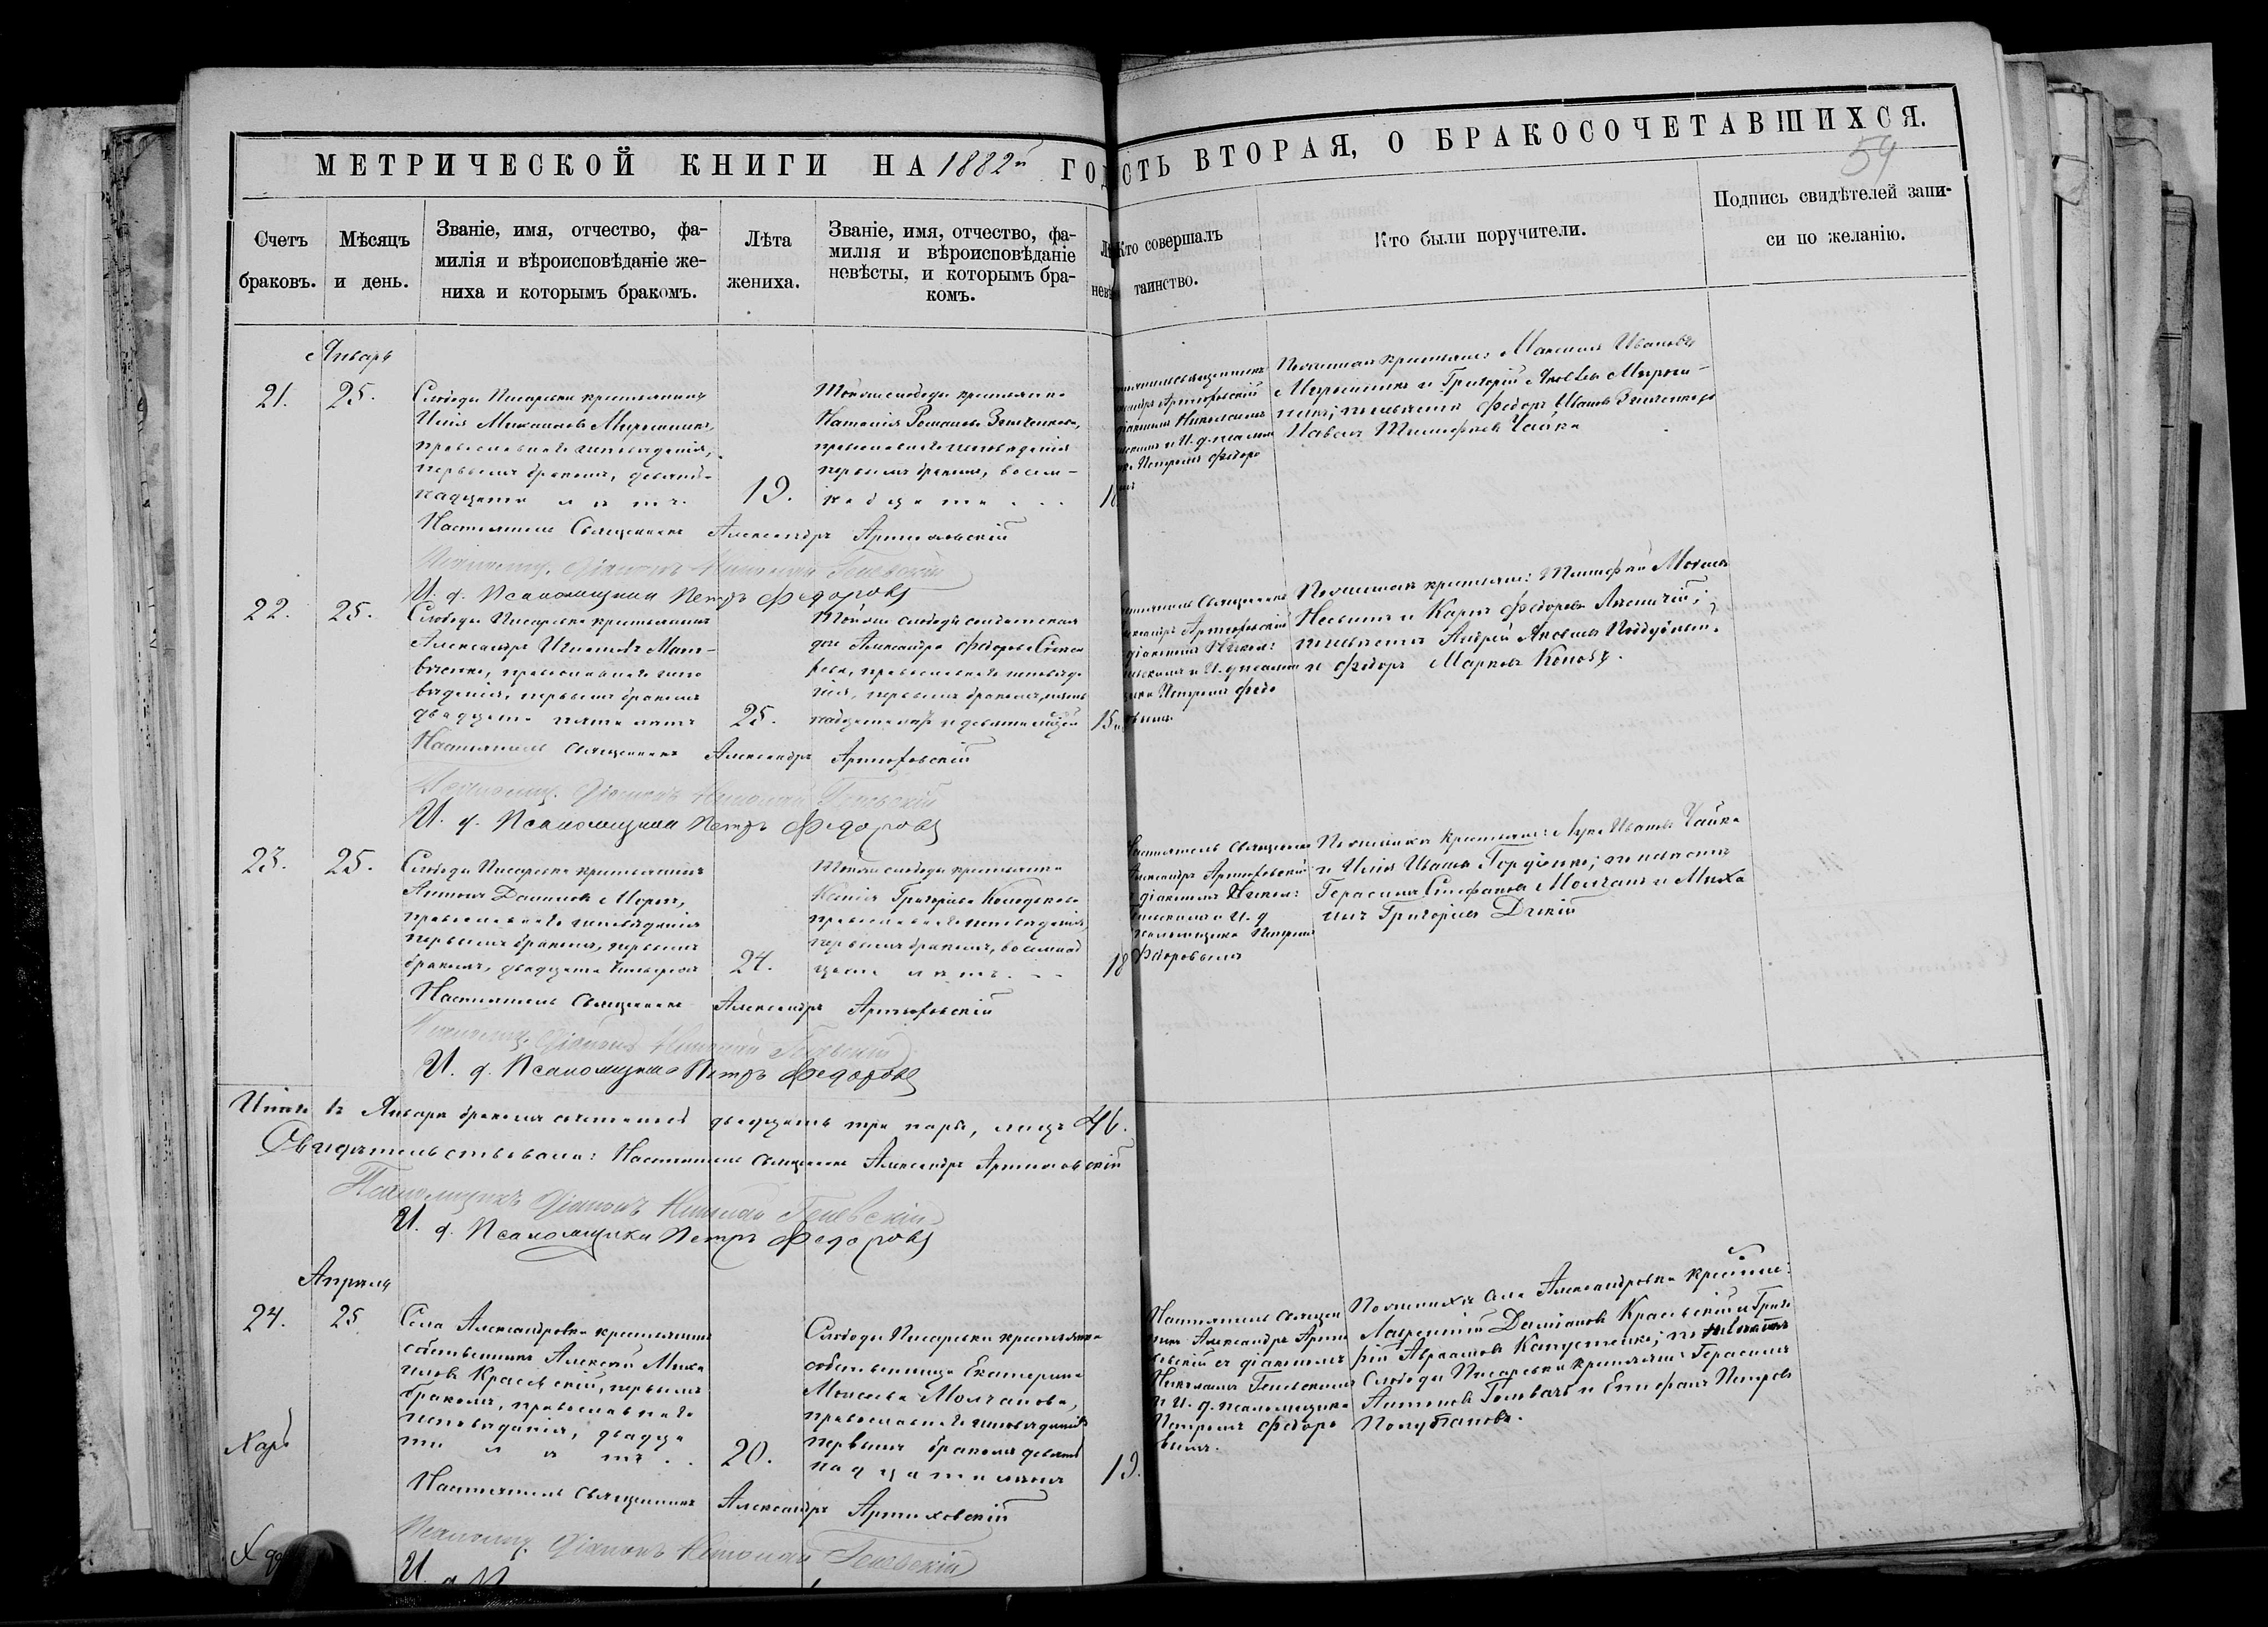 МЕТРИЧЕСКОЙ КНИГИ НА 1882й ГО
СТЬ ВТОРАЯ, О БРАКОСОЧЕТАВШИХСЯ.
54
Счетъ браковъ.
Мѣсяцъ и день.
Званіе, имя, отчество, фа-
милія и вѣроисповѣданіе же-
ниха и которымъ бракомъ.
Лѣта
жениха.
Званіе, имя, отчество, фа-
милія и вѣроисповѣданіе
невѣсты, и которымъ бра-
комъ.
Кто совершалъ
таинство.
Кто были поручители.
Подпись свидѣтелей запи-
си по желанію.
Январь
21.
25.
Слободы Писаревки крестьянинъ
Илія Михаиловъ Мирошникъ,
православнаго исповѣданія,
первымъ бракомъ, девят-
надцати лѣтъ.
19.
Тойже слободы крестьянка
Наталія Романова Зинченкова,
православнаго исповѣданія
первымъ бракомъ, восем-
надцати
Александръ Артюховскій
Николаемъ
Петромъ Федоро
По женихѣ крестьяне: Максимъ Ивановъ
Мирошникъ и Григорій Яковлевъ Мирош-
никъ; по невѣстѣ Федоръ Ивановъ Зинченко и
Павелъ Тимофеевъ Чайка
Настоятель Священникъ Александръ Артюховскій
Псаломщ. Діаконъ Николай Геневскій
И. д. Псаломщика Петръ Федоровъ
22.
25.
Слободы Писаревки крестьянинъ
Александръ Игнатовъ Мат-
вѣенко, православнаго испо
вѣданія, первымъ бракомъ
двадцати пяти лѣтъ
25.
Тойже слободы солдатская
дочь Александра Федорова
православнаго исповѣда
нія, первымъ бракомъ, пят
надцати лѣтъ и девяти мѣсяц
15
Настоятель Священникъ
Александръ Артюховскій
діакономъ Никол:
и И. д. псалом
щика Петромъ Федо
ровымъ
По женихѣ крестьяне: Тимофей
и Карпъ Федоровъ
по невѣстѣ Андрей Яковлевъ
и Федоръ Марковъ
Настоятель Священникъ Александръ Артюховскій
Псаломщ. Діаконъ Николай Геневскій
И. д. Псаломщика Петръ Федоровъ
23.
25.
Слободы Писаревки крестьянинъ
Антонъ Даниловъ Морозъ,
православнаго исповѣданія
первымъ бракомъ, первымъ
бракомъ, двадцати четырехъ
24.
Тойже слободы крестьянка
Ксенія Григорьева
православнаго исповѣданія,
первымъ бракомъ, восемнад
цати лѣтъ.
18
Настоятель Священникъ
Александръ Артюховскій
діакономъ Никол:
и И. д
псаломщика Петромъ
Федоровымъ
По женихѣ крестьяне: Лука Ивановъ Чайка
и Илія Ивановъ Гордіенко; по невѣстѣ
Герасимъ Стефановъ Молчанъ и Миха
илъ Григорьевъ Дикій
Настоятель Священникъ Александръ Артюховскій
Псаломщ. Діаконъ Николай Геневскій
И. д. Псаломщика Петръ Федоровъ
Итого въ Январѣ бракомъ сочетаной двадцать три пары, лицъ 46.
Свидѣтельствовали: Настоятель Священникъ Александръ Артюховскій
Псаломщикъ Діаконъ Николай Геневскій
И. д. Псаломщика Петръ Федоровъ
Апрѣль
24.
25
Села Александровки крестьянинъ
собственникъ Алексѣй Миха
иловъ Красевскій, первымъ
бракомъ, православнаго
исповѣданія, двадца
ти лѣтъ
20.
Слободы Писаревки крестьянка
собственница Екатерина
Моисеева Молчанова,
православнаго исповѣданія
первымъ бракомъ девят
надцати лѣтъ
19.
Настоятель Священ
никъ Александръ Артю
ховскій съ діакономъ
Николаемъ Геневскимъ
и И. д. псаломщика
Петромъ Федоро
вымъ.
По женихѣ села Александровки крестьяне:
Лаврентій Даміановъ Красевскій и Григо
рій Авраамовъ Капустенко; по невѣстѣ
слободы Писаревки крестьяне: Герасимъ
Антоновъ Головачъ и Епифанъ Петровъ
Полубановъ.
Настоятель Священникъ Александръ Артюховскій
Псаломщ. Діаконъ Николай Геневскій
Харь